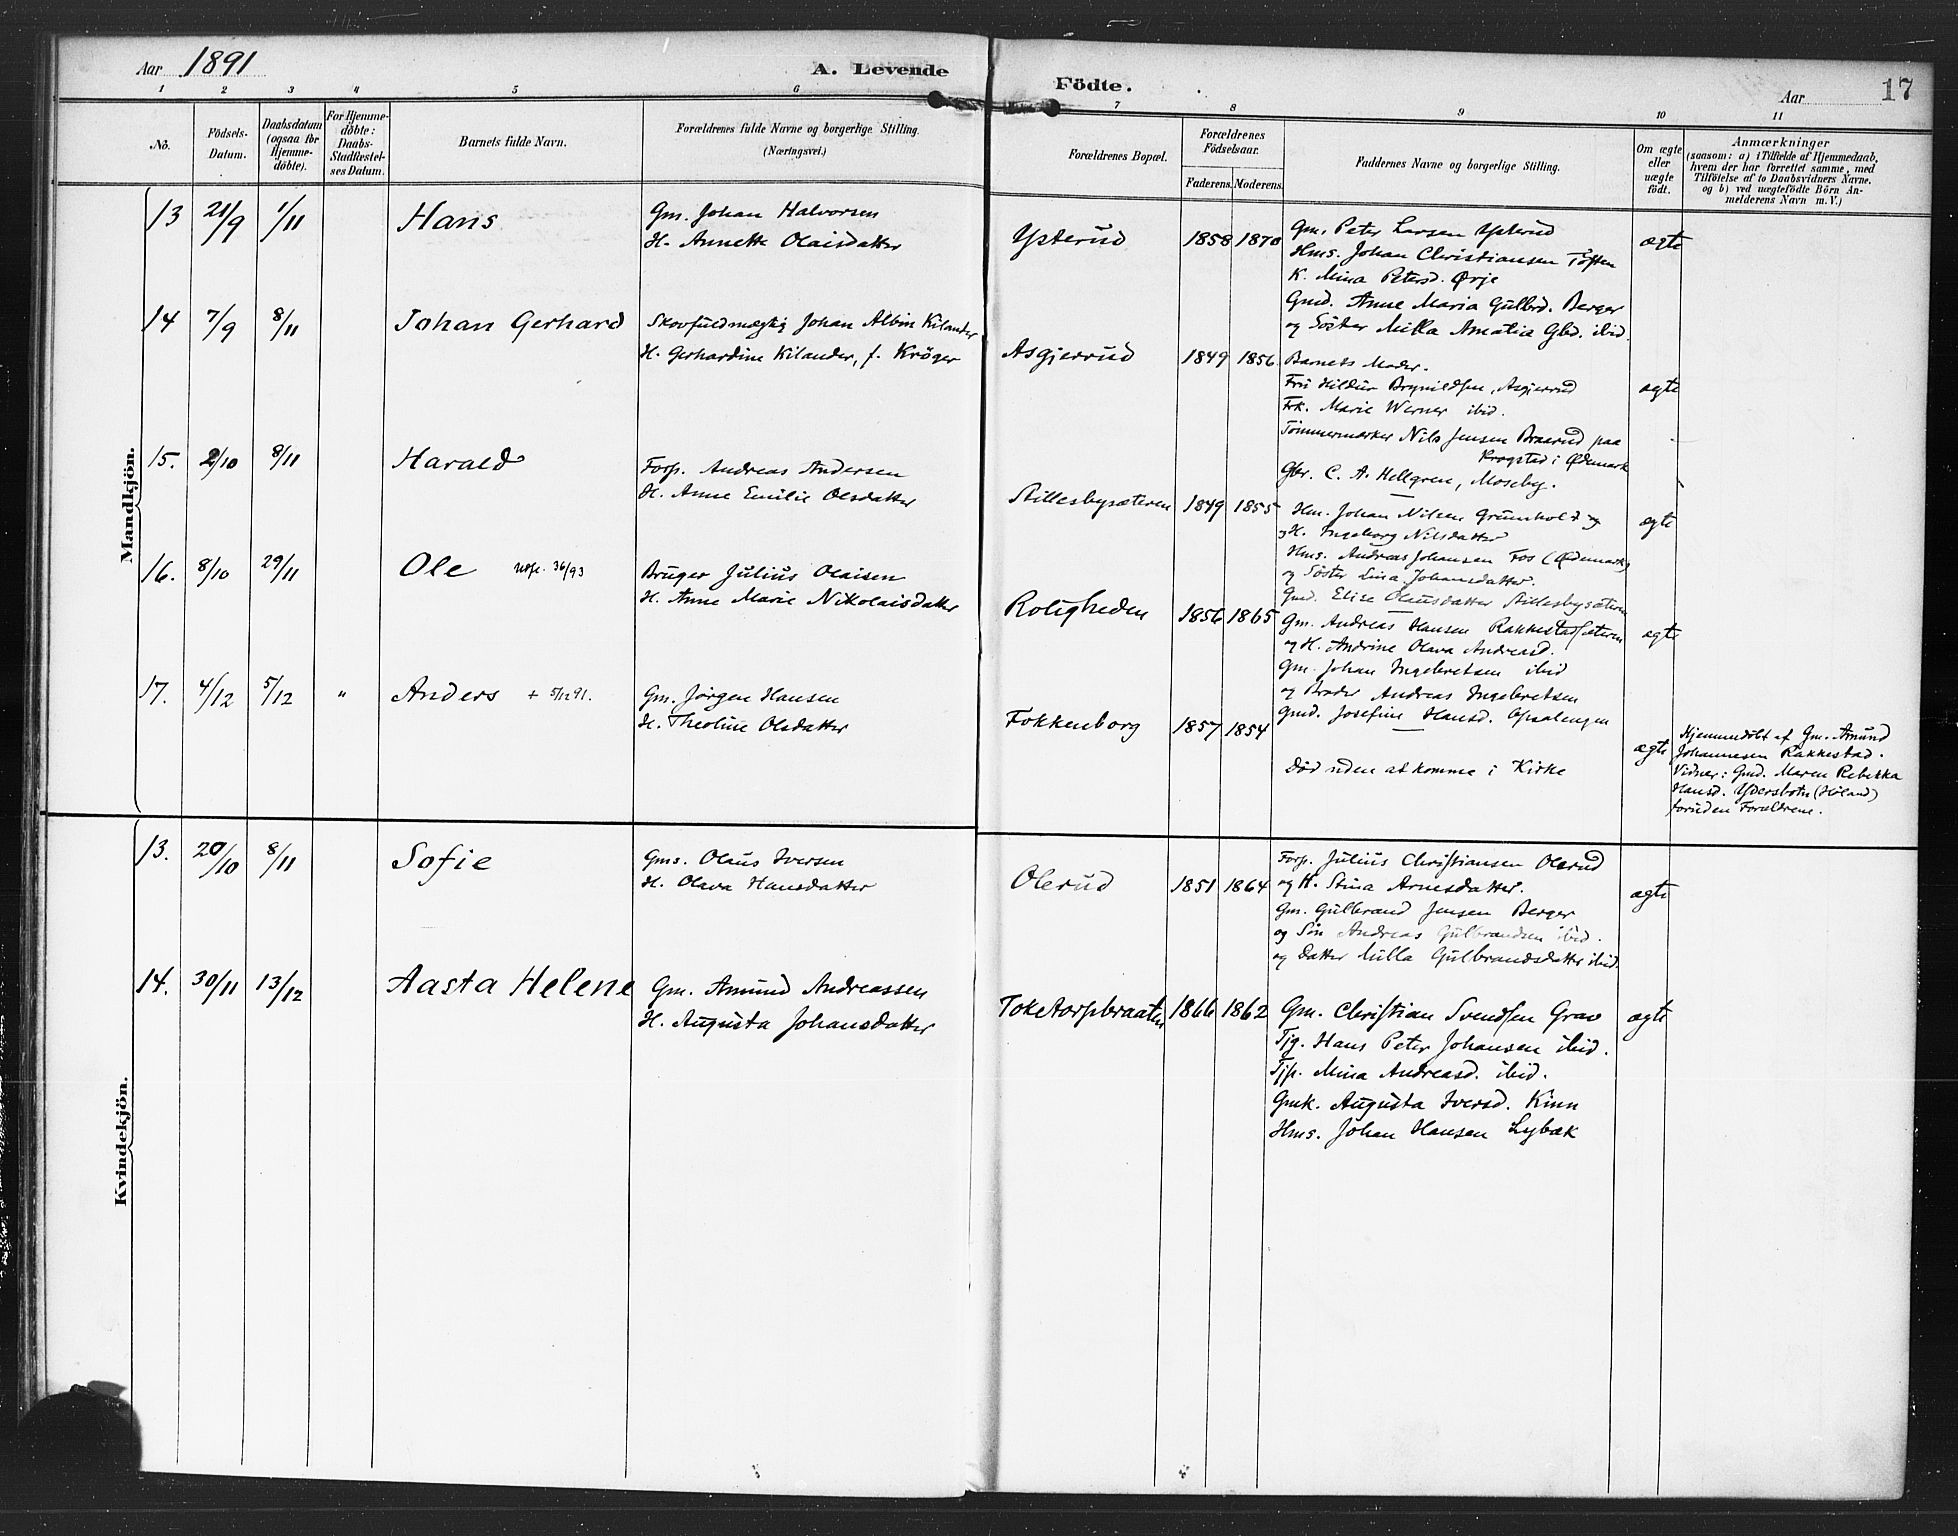 Aar 1891
A. Levende
Födte.
Aar
17
1 2 3 4 5 6 7 8 9 10 11
No.
Födsels-
Datum.
Daabsdatum
(ogsaa for
Hjemme-
döbte).
For Hjemme-
döbte:
Daabs-
Stadfestel-
ses Datum.
Barnets fulde Navn.
Forældrenes fulde Navne og borgerlige Stilling.
(Næringsvei.)
Forældrenes Bopæl.
Forældrenes
Födselsaar.
Faderens. Moderens.
Faddernes Navne og borgerlige Stilling.
Om ægte
eller
uægte
födt.
Anmærkninger
(saasom: a) i Tilfælde af Hjemmedaab,
hvem der har forrettet samme, med
Tilföielse af to Daabsvidners Navne,
og b) ved uægtefödte Börn An-
melderens Navn m. V.)
Mandkjön.
13 21/9 1/11 Hans
Gm. Johan Halvorsen
H. Annette Olaisdatter
Ysterud 1858 1870
Gm. Peter Larsen Ysterud
Hms. Johan Christiansen Toften
K. Mina Petersd. Ørje
Gmd. Anne Maria Gulbrd. Berger
og Söster Milla Amalia Gbd. ibid.
ægte
14 7/9 8/11 Johan Gerhard
Skovfuldmægtig Johan Albin Kilander
H. Gerhardine Kilander, f. Kröger
Asgjerrud 1849 1856
Barnets Moder.
Fru Hildur Brynildsen, Asgjerrud
Frk. Marie Werner ibid.
Tömmermærker Nils Jensen Braarud paa
Krogstad i Ødemark
Gbr. C. A. Hellgren, Moseby.
ægte
15. 2/10 8/11 Harald
Forp. Andreas Andersen
H. Anne Emilie Olsdatter
Stillesbysæteren 1849 1855
Hm. Johan Nilsen Grumholt og
H. Ingeborg Nilsdatter
Hms. Andreas Johansen Fos (Ødemark)
og Söster Lina Johansdatter.
Gmd. Elise Olausdatter Stillesbysætern
ægte
16. 8/10 29/11 Ole 36/93
Bruger Julius Olaisen
H. Anne Marie Nikolaisdatter
Roligheden 1856 1865
Gm. Andreas Hansen Rakkestadsæteren
og H. Andrine Olava Andreasd.
Gm. Johan Ingebretsen ibid
og Broder Andreas Ingebretsen
Gmd. Josefine Hansd. Opsalengen
ægte
17. 4/12 5/12 " Anders + 5/12 91.
Gm. Jörgen Hansen
H. Theoline Olsdatter
Fokkenborg 1857 1854
Död uden at komme i Kirke
ægte
Hjemmedöbt af Gm. Amund
Johannesen Rakkestad.
Vidner: Gmd. Maren Rebekka
Hansd. Ydersbotn (Höland)
foruden Forældrene.
Kvindekjön.
13. 20/10 8/11 Sofie
Gms. Olaus Iversen
H. Olava Hansdatter
Olerud 1851 1864
Forp. Julius Christiansen Olerud
og H. Stina Arnesdatter.
Gm. Gulbrand Jensen Berger
og Sön Andreas Gulbrandsen ibid.
og Datter Milla Gulbrandsdatter ibid.
ægte
14. 30/11 13/12 Aasta Helene
Gm. Amund Andreassen
H. Augusta Johansdatter
Toketorpbraaten 1866 1862
Gm. Christian Svendsen Grav
Tjg. Hans Peter Johansen ibid.
Tjp. Mina Andreasd. ibid.
Gmk. Augusta Iversd. Kinn
Hms. Johan Hansen Lybæk
ægte